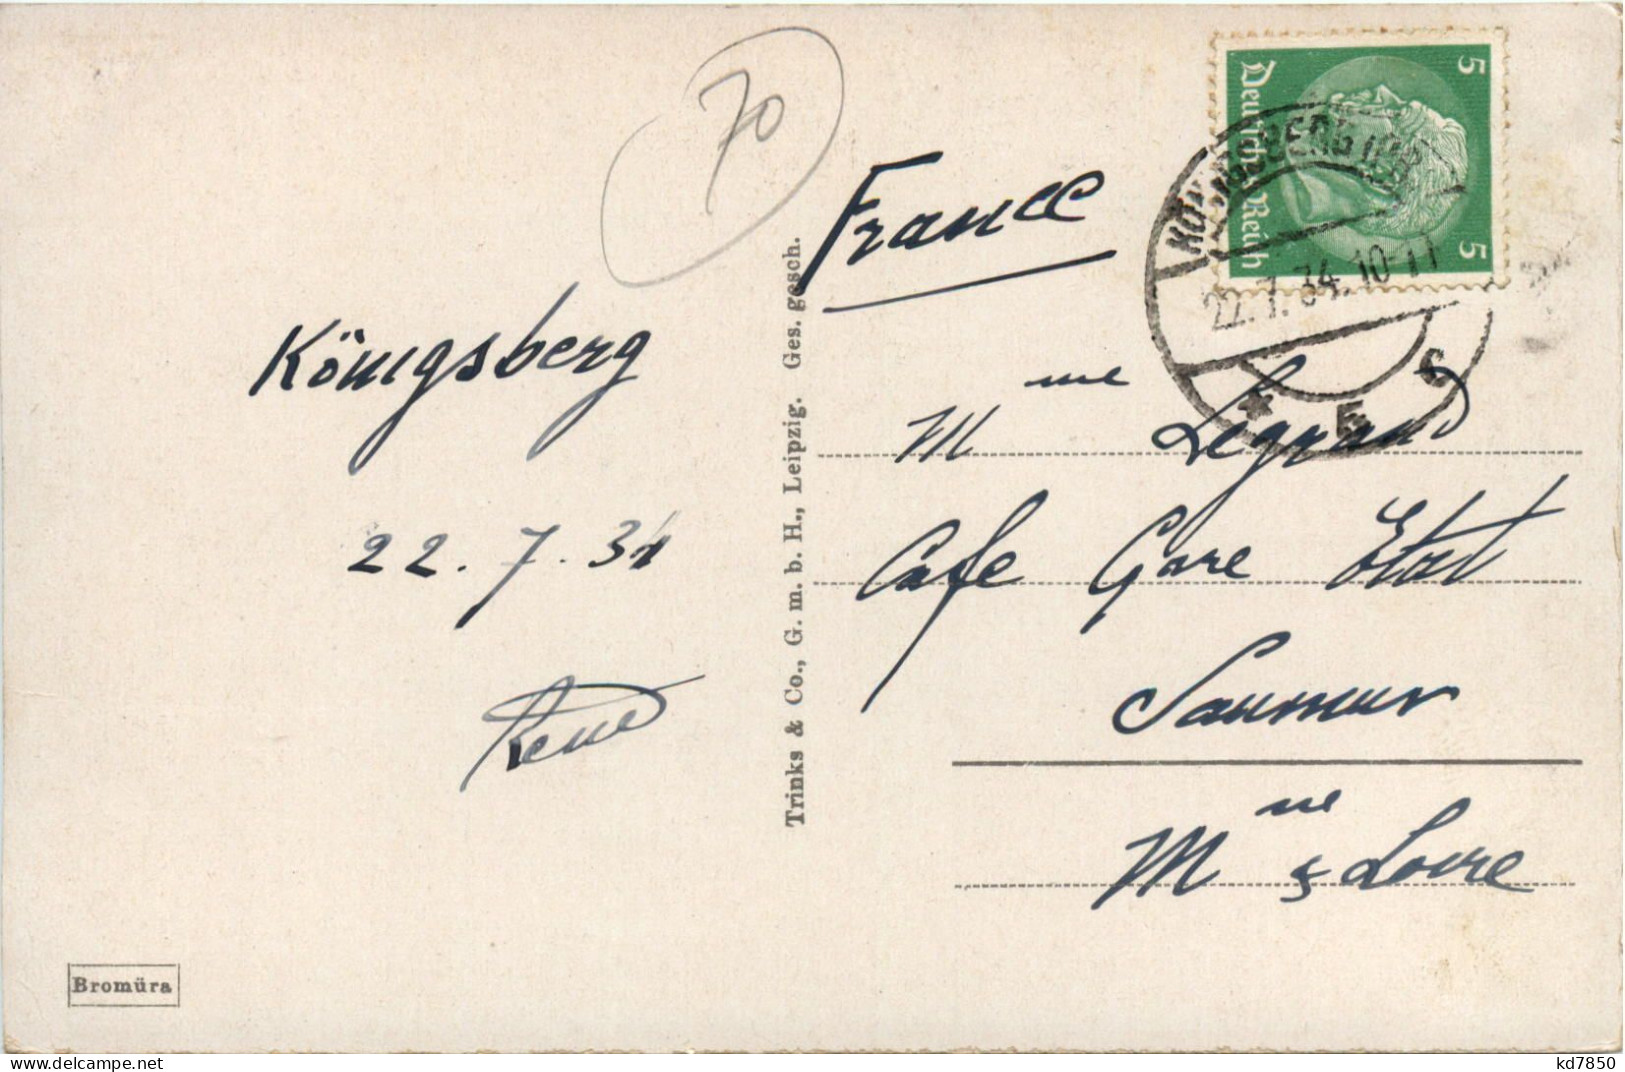 70
Deutsches Reich
5 5
KÖNIGSBERG (PR)
22.7.34.10-11
* 5 c
France
Königsberg
22.7.34
René
Trinks & Co., G. m. b. H., Leipzig. Ges. gesch.
Mme Legrand
Cafe Gare Etat
Saumur
Mne & Loire
Bromüra
www.delcampe.net
kd7850